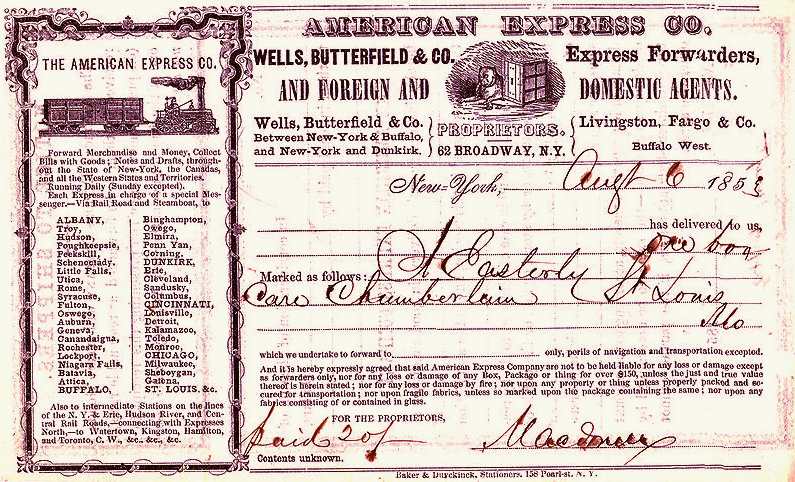 THE AMERICAN EXPRESS CO.
Forward Merchandise and Money, Collect
Bills with Goods; Notes and Drafts, through-
out the State of New-York, the Canadas,
and all the Western States and Territories.
Running Daily (Sunday excepted).
Each Express in charge of a special Mes-
senger.—Via Rail Road and Steamboat, to
ALBANY,
Troy,
Hudson,
Poughkeepsie,
Peekskill,
Schenectady,
Little Falls,
Utica,
Rome,
Syracuse,
Fulton,
Oswego,
Auburn,
Geneva,
Canandaigna,
Rochester,
Lockport,
Niagara Falls,
Batavia,
Attica,
BUFFALO,
Binghampton,
Owego,
Elmira,
Penn Yan,
Corning,
DUNKIRK,
Erie,
Cleveland,
Sandusky,
Columbus,
CINCINNATI,
Louisville,
Detroit,
Kalamazoo,
Toledo,
Monroe,
CHICAGO,
Milwaukee,
Sheboygan,
Galena,
ST. LOUIS, &c.
Also to intermediate Stations on the lines
of the N. Y. & Erie, Hudson River, and Cen-
tral Rail Roads,—connecting with Expresses
North,—to Watertown, Kingston, Hamilton,
and Toronto, C. W., &c., &c., &c.
AMERICAN EXPRESS CO.
WELLS, BUTTERFIELD & CO. Express Forwarders,
AND FOREIGN AND DOMESTIC AGENTS.
Wells, Butterfield & Co.
Between New-York & Buffalo,
and New-York and Dunkirk.
PROPRIETORS.
62 BROADWAY, N.Y.
Livingston, Fargo & Co.
Buffalo West.
New-York, Augt 6 1853
has delivered to us,
one box
Marked as follows: A Easterly
Care Chamberlain St Louis
Mo
which we undertake to forward to only, perils of navigation and transportation excepted.
And it is hereby expressly agreed that said American Express Company are not to be held liable for any loss or damage except
as forwarders only, nor for any loss or damage of any Box, Package or thing for over $150, unless the just and true value
thereof is herein stated; nor for any loss or damage by fire; nor upon any property or thing unless properly packed and se-
cured for transportation; nor upon fragile fabrics, unless so marked upon the package containing the same; nor upon any
fabrics consisting of or contained in glass.
FOR THE PROPRIETORS,
paid 20/
Contents unknown.
Baker & Duyckinck, Stationers, 158 Pearl-st. N. Y.